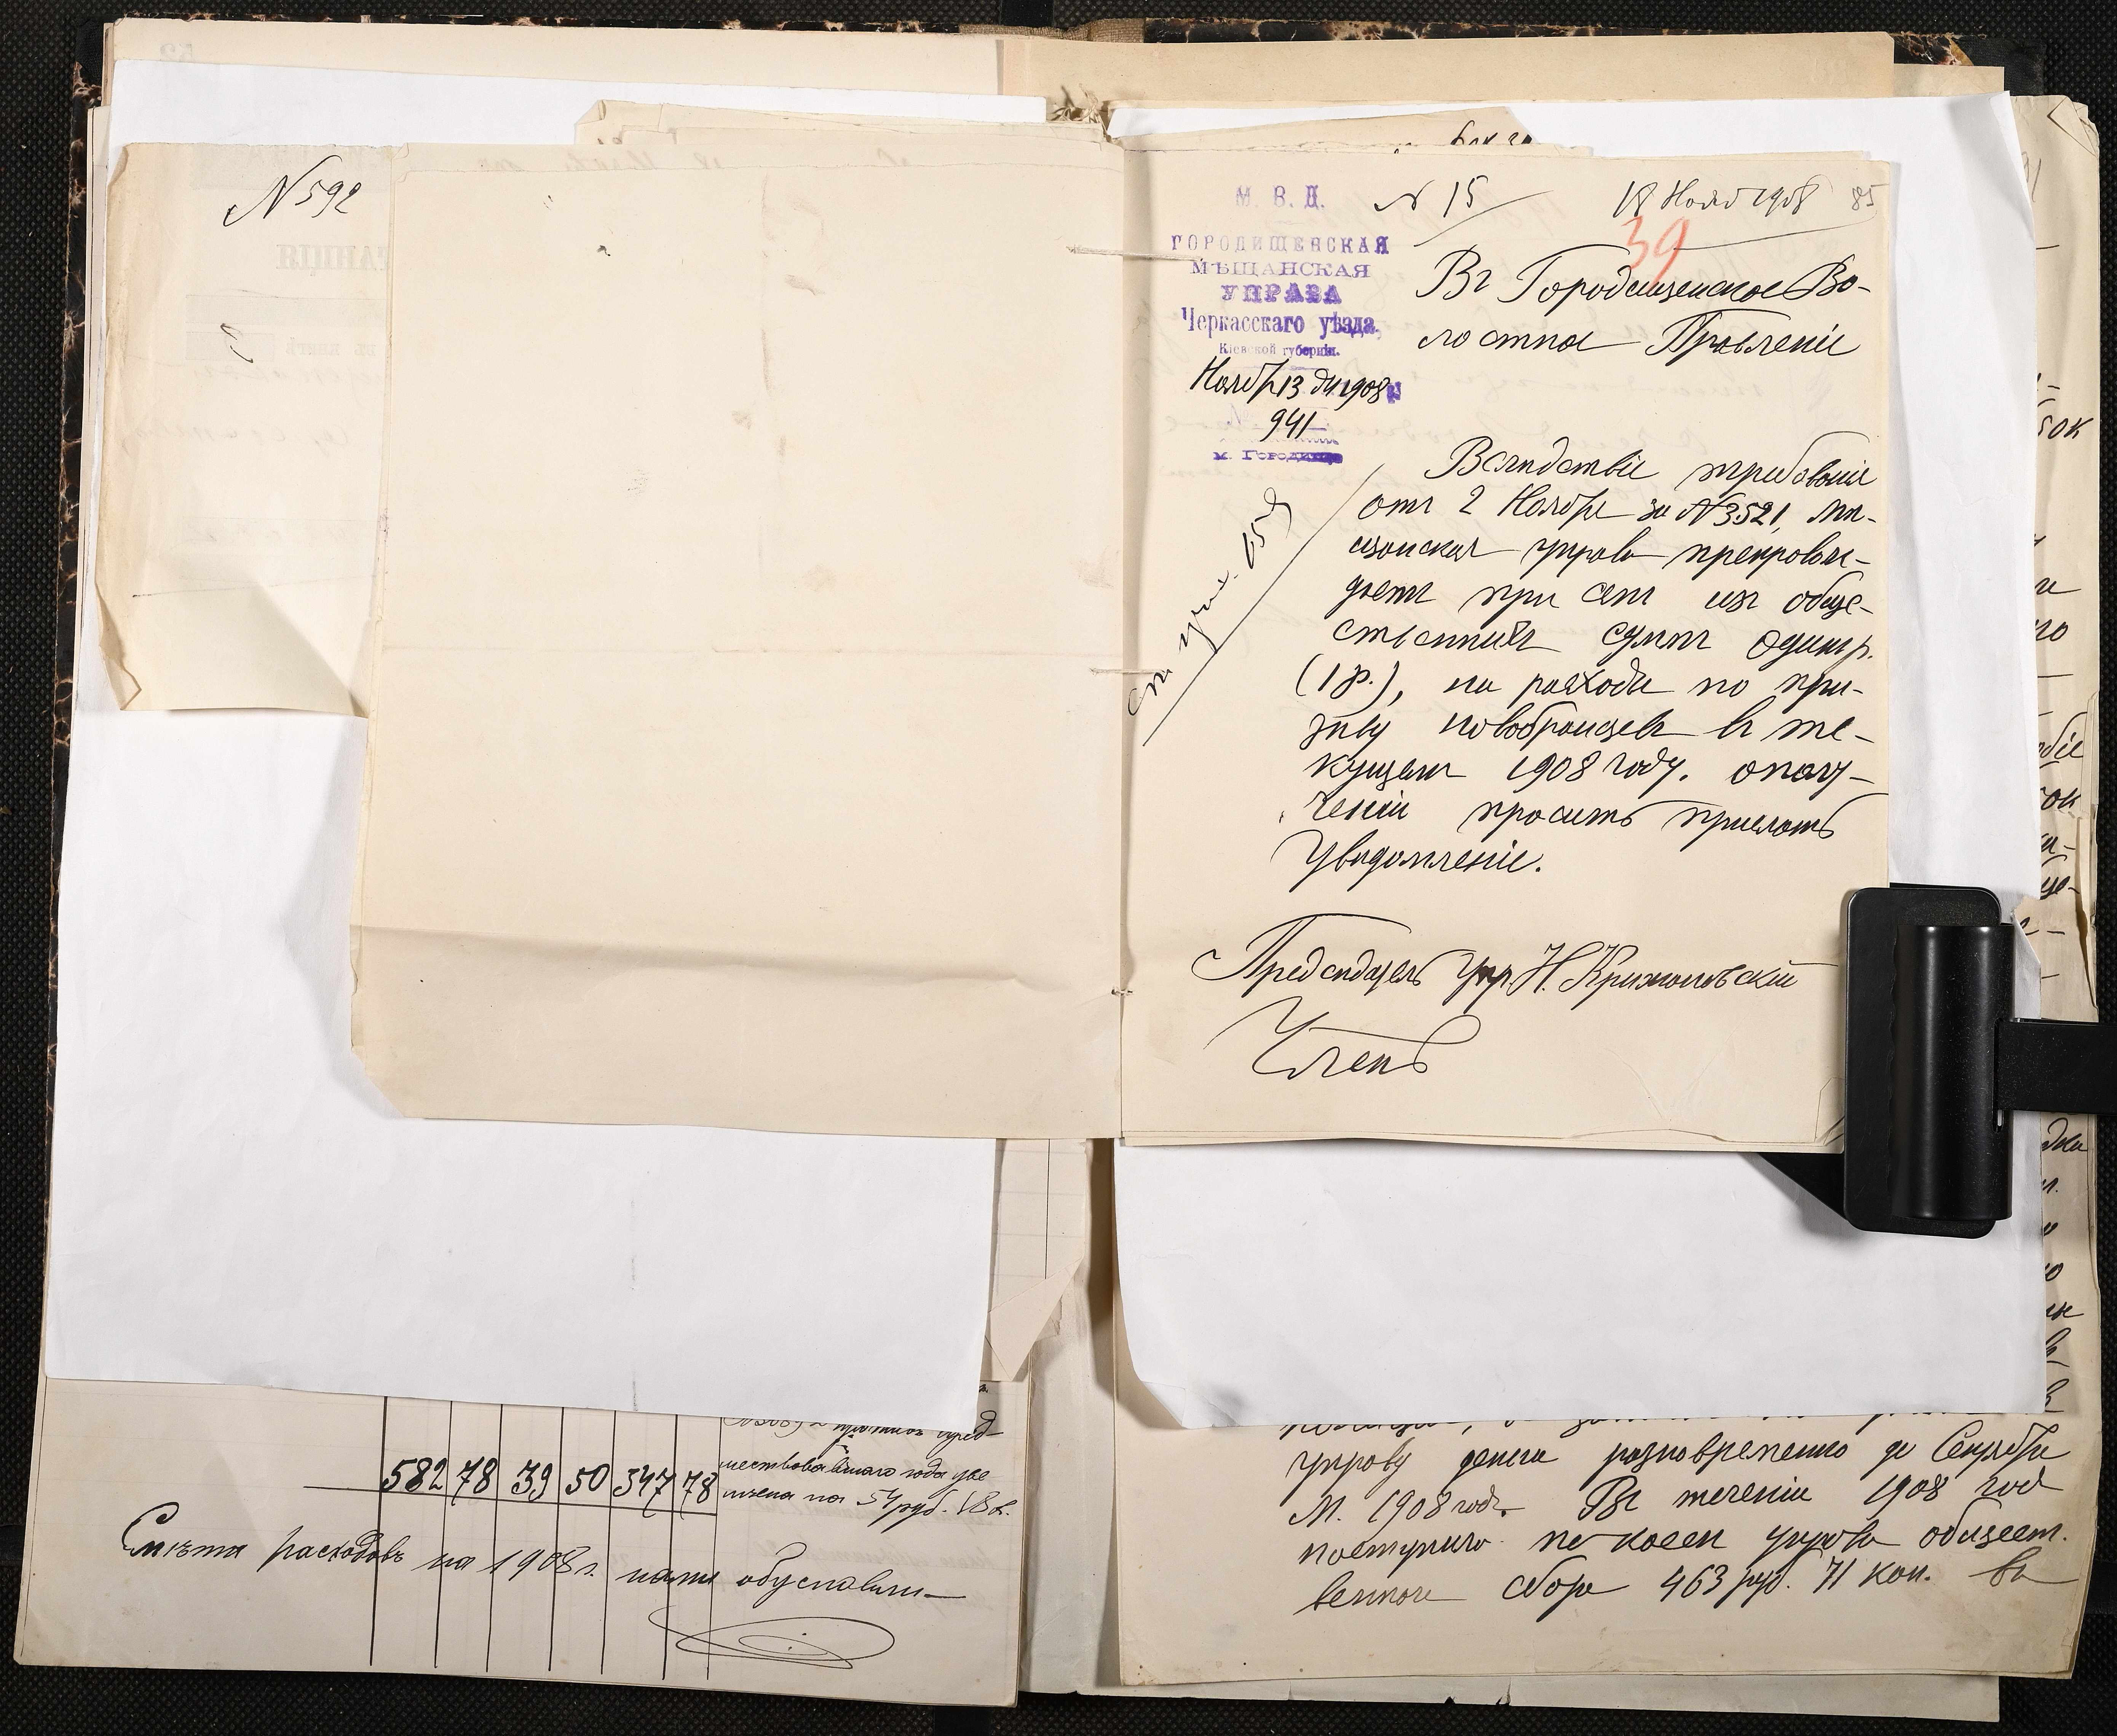 № 592
М. В. Д.
ГОРОДИЩЕНСКАЯ
МѢЩАНСКАЯ
УПРАВА
Черкасскаго уѣзда,
Кіевской губерніи.
Ноябр 13 дн 1908
№ 941
м. Городище
№ 15
18 Нояб 1908
85
39
Въ Городищенское Во-
лостное Правленіе
Вслѣдствіе требованія
отъ 2 Ноября за № 3521, мѣ-
щанская управа препровож-
даетъ при семъ изъ обще-
ственныхъ суммъ одинъ р.
(1 р.), на расходы по при-
зыву новобранцевъ въ те-
кущемъ 1908 году. о полу-
ченіи проситъ прислать
увѣдомленіе.
Предсѣдатель Упр. Н. Крижановскій
Членъ
582 78 39 50 347 78
шествовавшаго года уве
на 54 руб. 18 к.
Смѣта расходовъ на 1908 г. нами
управу деньги разновременно до Сентября
м. 1908 года. Въ теченіи 1908 года
поступило по кассѣ управы общест.
веннаго сбора 463 руб. 71 коп. въ